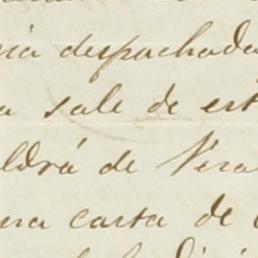 ria despachada
a sale de est
ldrá de Vera
una carta de